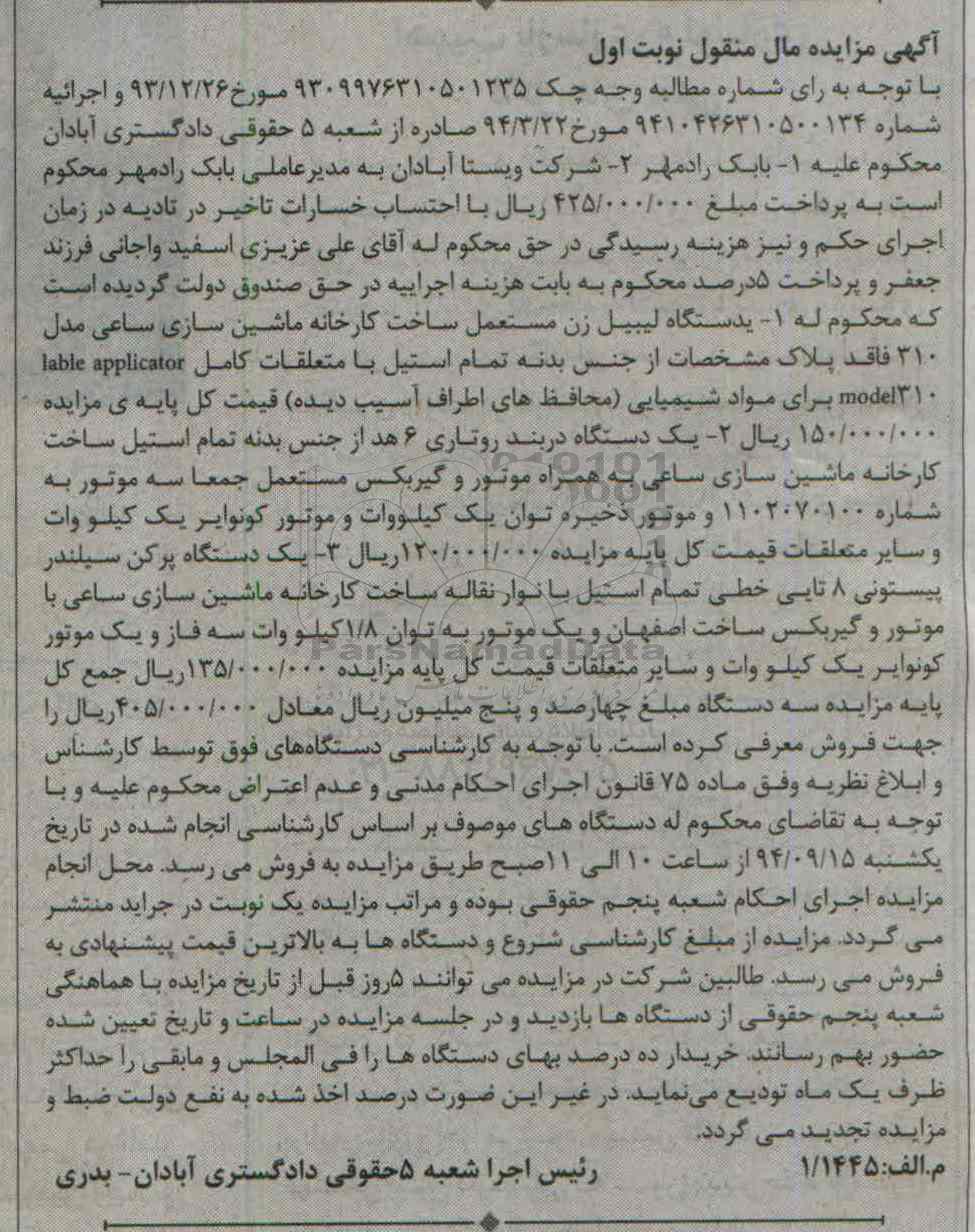 آگهی مزایده مال منقول نوبت اول
با توجه به رای شماره مطالبه وجه چک ۹۳۰۹۹۷۶۳۱۰۵۰۱۲۳۵ مورخ۹۳/۱۲/۲۶ و اجرائیه
شماره ۹۴۱۰۴۲۶۳۱۰۵۰۰۱۳۴ مورخ۹۴/۳/۲۲ صادره از شعبه ۵ حقوقی دادگستری آبادان
محکوم علیه ۱- بابک رادمهر ۲- شرکت ویستا آبادان به مدیرعاملی بابک رادمهر محکوم
است به پرداخت مبلغ ۴۲۵/۰۰۰/۰۰۰ ریال با احتساب خسارات تاخیر در تادیه در زمان
اجرای حکم و نیز هزینه رسیدگی در حق محکوم له آقای علی عزیزی اسفید واجانی فرزند
جعفر و پرداخت ۵درصد محکوم به بابت هزینه اجراییه در حق صندوق دولت گردیده است
که محکوم له ۱- یدستگاه لیبیل زن مستعمل ساخت کارخانه ماشین سازی ساعی مدل
۳۱۰ فاقد پلاک مشخصات از جنس بدنه تمام استیل با متعلقات کامل lable applicator
model۳۱۰ برای مواد شیمیایی (محافظ های اطراف آسیب دیده) قیمت کل پایه ی مزایده
۱۵۰/۰۰۰/۰۰۰ ریال ۲- یک دستگاه دربند روتاری ۶ هد از جنس بدنه تمام استیل ساخت
کارخانه ماشین سازی ساعی به همراه موتور و گیربکس مستعمل جمعا سه موتور به
شماره ۱۱۰۲۰۷۰۱۰۰ و موتور ذخیره توان یک کیلووات و موتور کونوایر یک کیلو وات
و سایر متعلقات قیمت کل پایه مزایده ۱۲۰/۰۰۰/۰۰۰ریال ۳- یک دستگاه پرکن سیلندر
پیستونی ۸ تایی خطی تمام استیل با نوار نقاله ساخت کارخانه ماشین سازی ساعی با
موتور و گیربکس ساخت اصفهان و یک موتور به توان ۱/۸کیلو وات سه فاز و یک موتور
کونوایر یک کیلو وات و سایر متعلقات قیمت کل پایه مزایده ۱۳۵/۰۰۰/۰۰۰ریال جمع کل
پایه مزایده سه دستگاه مبلغ چهارصد و پنج میلیون ریال معادل ۴۰۵/۰۰۰/۰۰۰ریال را
جهت فروش معرفی کرده است. با توجه به کارشناسی دستگاه‌های فوق توسط کارشناس
و ابلاغ نظریه وفق ماده ۷۵ قانون اجرای احکام مدنی و عدم اعتراض محکوم علیه و با
توجه به تقاضای محکوم له دستگاه های موصوف بر اساس کارشناسی انجام شده در تاریخ
یکشنبه ۹۴/۰۹/۱۵ از ساعت ۱۰ الی ۱۱صبح طریق مزایده به فروش می رسد. محل انجام
مزایده اجرای احکام شعبه پنجم حقوقی بوده و مراتب مزایده یک نوبت در جراید منتشر
می گردد. مزایده از مبلغ کارشناسی شروع و دستگاه ها به بالاترین قیمت پیشنهادی به
فروش می رسد. طالبین شرکت در مزایده می توانند ۵روز قبل از تاریخ مزایده با هماهنگی
شعبه پنجم حقوقی از دستگاه ها بازدید و در جلسه مزایده در ساعت و تاریخ تعیین شده
حضور بهم رسانند. خریدار ده درصد بهای دستگاه ها را فی المجلس و مابقی را حداکثر
ظرف یک ماه تودیع می‌نماید. در غیر این صورت درصد اخذ شده به نفع دولت ضبط و
مزایده تجدید می گردد.
م.الف:۱/۱۴۴۵ رئیس اجرا شعبه ۵حقوقی دادگستری آبادان- بدری
ParsNamadData